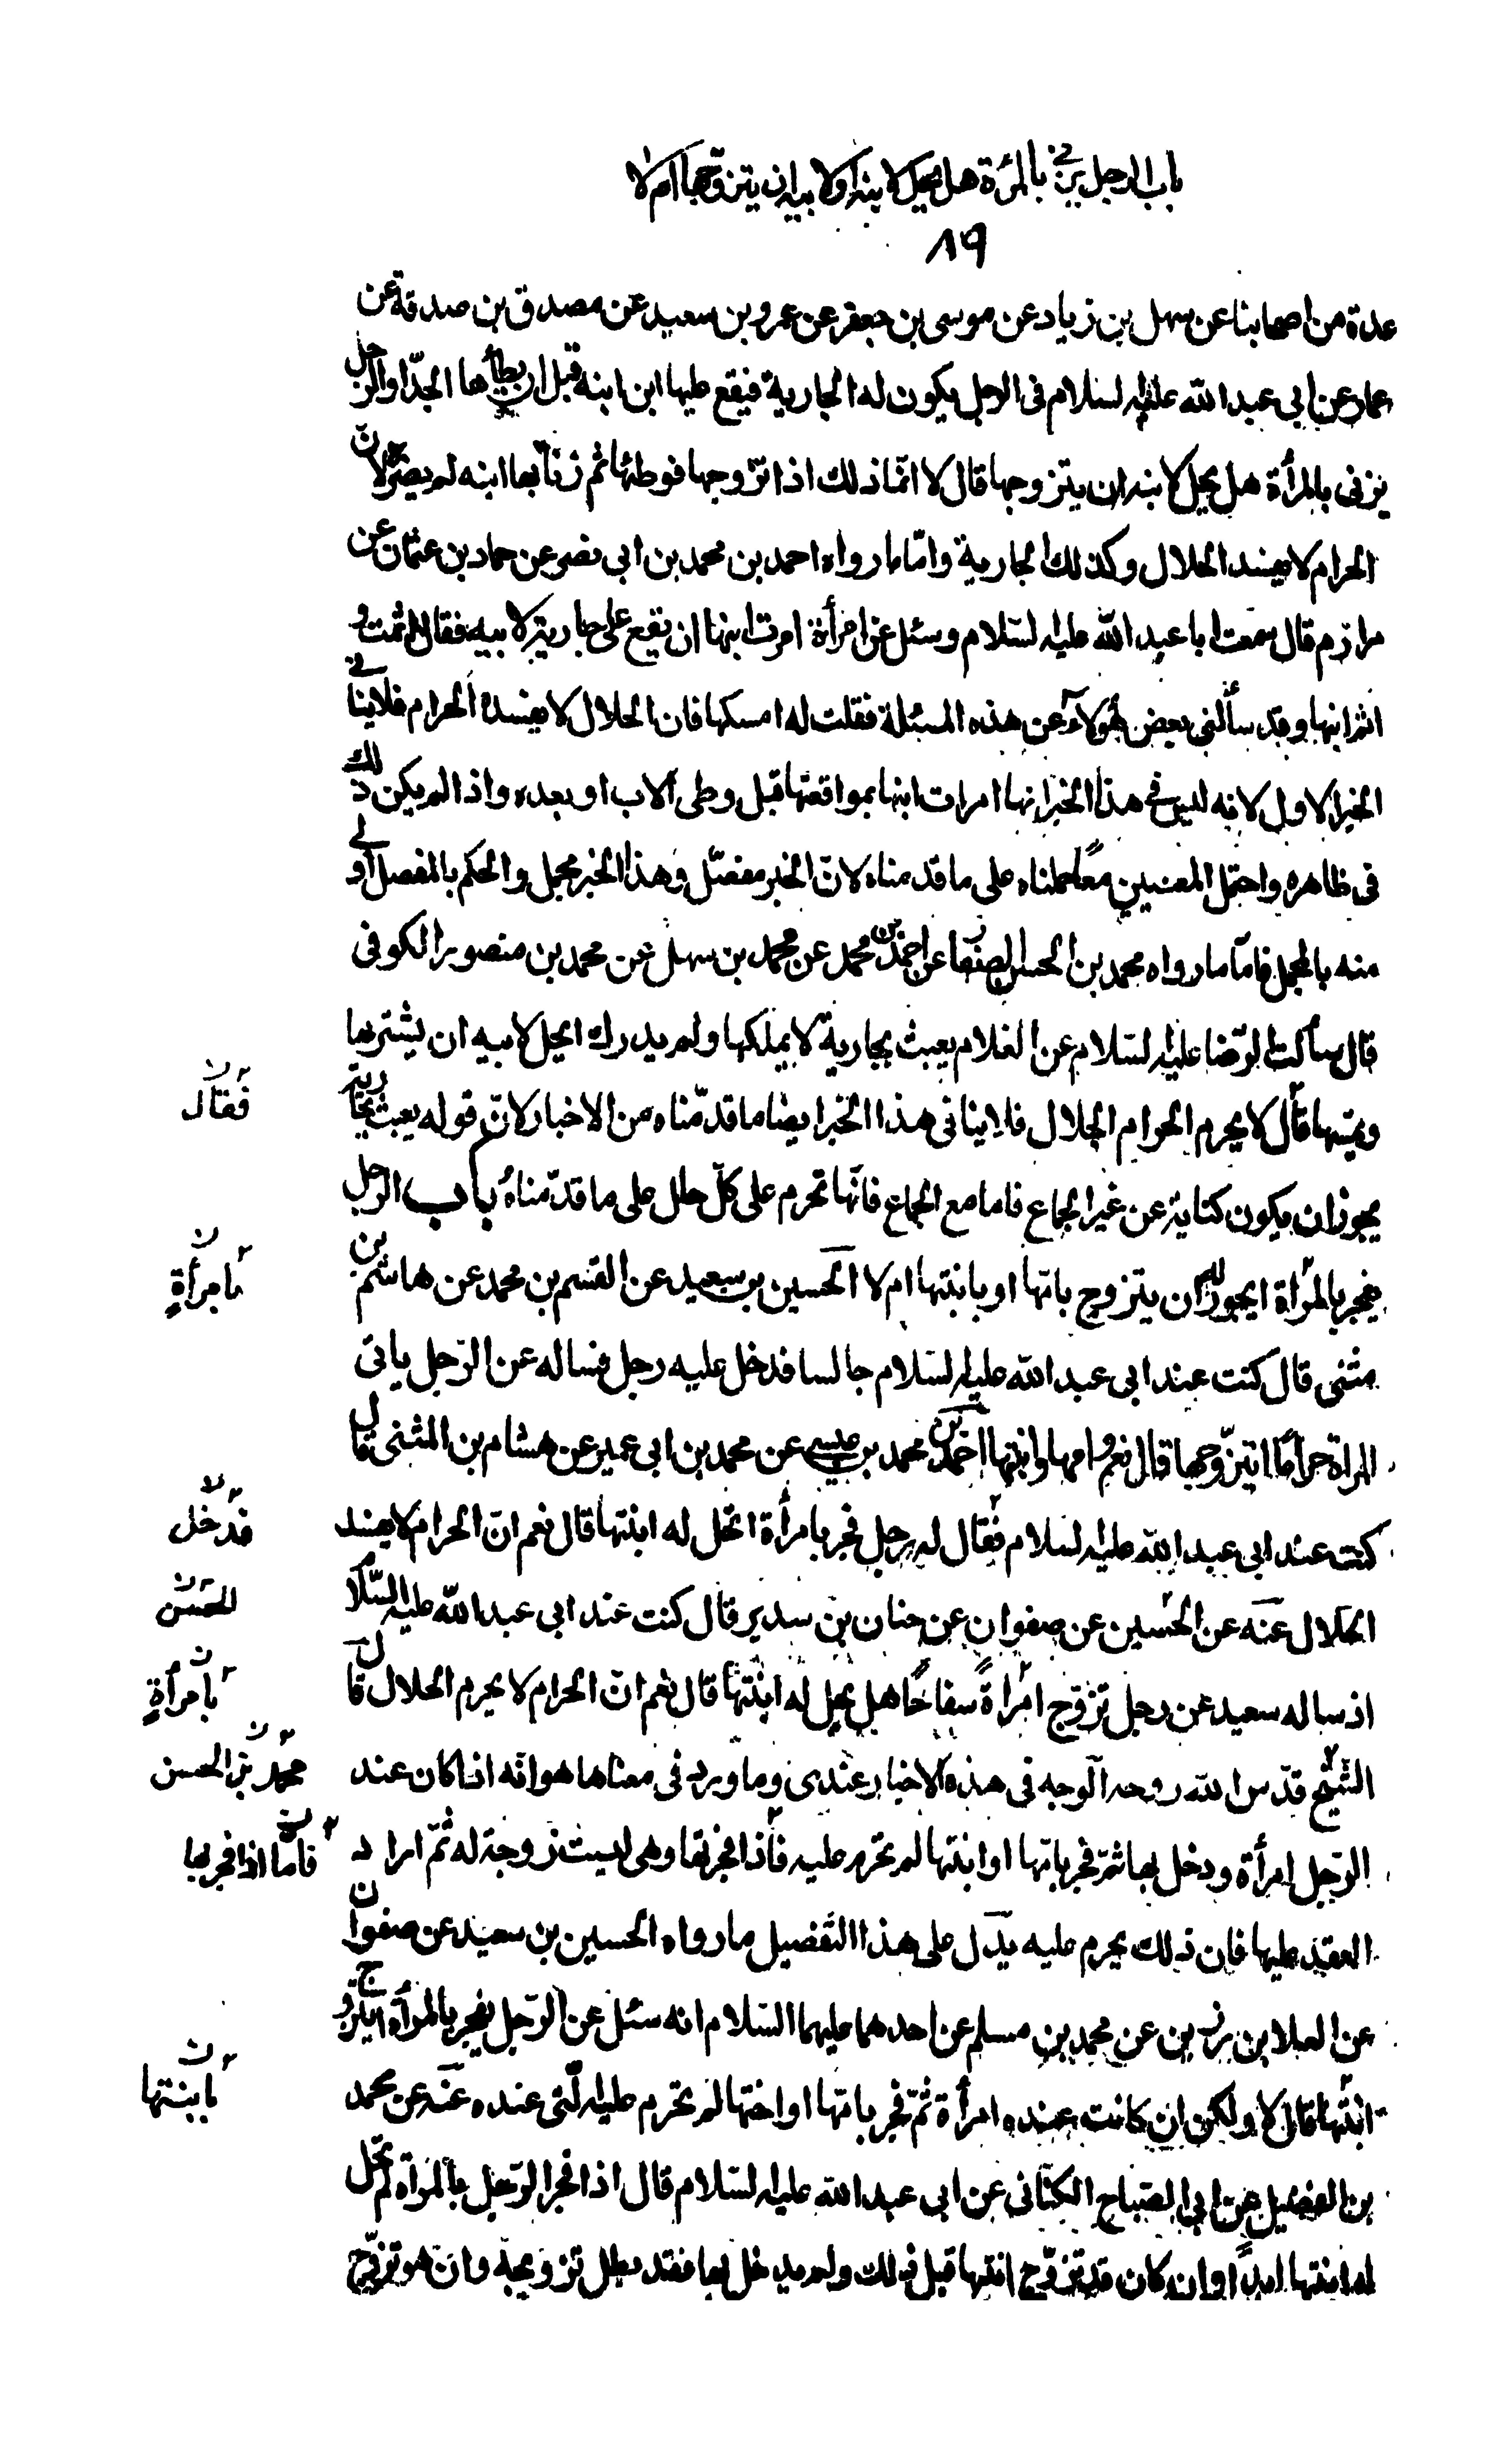 باب الرجل يزني بالمرئة هل يحل لابنه او لابيه ان يتزوجها ام لا
٨٩
عدة من اصحابنا عن سهل بن زياد عن موسى بن جعفر عن عمرو بن سعيد عن مصدق بن صدقة عن
عمار عن ابي عبد الله عليه السلام في الرجل يكون له الجارية فيقع عليها ابن ابنه قبل ان يطأها الجدّ او الرجل
يزنى بالمرأة هل يحل لابنه ان يتزوجها قال لا انمّا ذلك اذا تزّوجها فوطئها ثم زنا بها ابنه لم يضرّه لان
الحرام لا يفسد الحلال وكذلك الجارية وامّا ما رواه احمد بن محمد بن ابى نصر عن حماد بن عثمان عن
مرازم قال سمعت ابا عبد الله عليه السلام وسئل عن امرأة امرت ابنها ان يقع على جارية لابيه فقال اثمت و
اثم ابنها وقد سألنى بعض هؤلاء عن هذه المسئلة فقلت له امسكها فان الحلال لا يفسده الحرام فلا ينافي
الخبر الاول لانه ليس في هذا الخبر انها امرات ابنها بمواقعتها قبل وطى الاب او بعده واذا لم يكن ذلك
فى ظاهره واحتمل المعنيين معًا حملناه على ما قدمناه لانّ الخبر مفصّل وهذا الخبر مجمل والحكم بالمفصل اولي
منه بالمجمل فامّا ما رواه محمد بن الحسن الصفار عن احمد بن محمد عن محمد بن سهل عن محمد بن منصور الكوفى
قال سألت الرّضا عليه السّلام عن الغلام يعبث بجارية لا يملكها ولم يدرك ايحل لابيه ان يشتريها
ويمسّها قال لا يحرم الحرام الحلال فلا ينافى هذا الخبر ايضا ما قدّمناه من الاخبار لانّ قوله يعبث بجارية
فقال
يجوز ان يكون كناية عن غير الجماع فاما مع الجماع فانّها تحرم على كلّ حال على ما قدّمناهُ باب الرجل
يفجر بالمرأة ايجوز له ان يتزوج بامّها او بابنتها ام لا الحسين بن سعيد عن القسم بن محمد عن هاشم بن
بامرأةٍ
مثنى قال كنت عند ابى عبد الله عليه السّلام جالسا فدخل عليه رجل فساله عن الرّجل ياتى
المراة حرامًا ايتزّوجها قال نعم وامها وابنتها احمد بن محمد بن عيسى عن محمد بن ابى عمير عن هشام بن المثنى قال
كنت عند ابى عبد الله عليه السلام فقال له رجل فجر بامرأة اتحل له ابنتها قال نعم انّ الحرام لا يفسد
فدخل
الحلال عنه عن الحسين عن صفوان عن حنان بن سدير قال كنت عند ابى عبد الله عليه السّلام
الحسن
اذ ساله سعيد عن رجل تزوّج امراةً سفاحًا هل يحل له ابنتها قال نعم انّ الحرام لا يحرم الحلال قال
بامرأةٍ
الشّيخ قدّس الله روحه الوجه فى هذه الاخبار عندى وما ورد فى معناها هو انّه اذا كان عند
محمد بن الحسن
الرّجل امرأة ودخل بها ثمّ فجر بامّها او ابنتها لم تحرم عليه فاذا فجر بها وهى ليست زوجة له ثمّ اراد
فامّا اذا فجر بها
العقد عليها فان ذلك يحرم عليه يدّل على هذا التفصيل ما رواه الحسين بن سعيد عن صفوان
عن العلا بن رزين عن محمد بن مسلم عن احدهما عليهما السّلام انه سئل عن الرّجل يفجر بالمرأة ايتزوج
ابنتها قال لا ولكن ان كانت عنده امرأة ثمّ فجر بامّها او اختها لم تحرم عليه الّتى عنده عنه عن محمد
بابنتها
بن الفضيل عن ابى الصّباح الكنانى عن ابى عبد الله عليه السّلام قال اذا فجر الرّجل بالمراة لم تحل
له ابنتها ابدًا وان كان قد تزوّج ابنتها قبل ذلك ولم يدخل بها فقد بطل تزويجه وان هو تزوّج